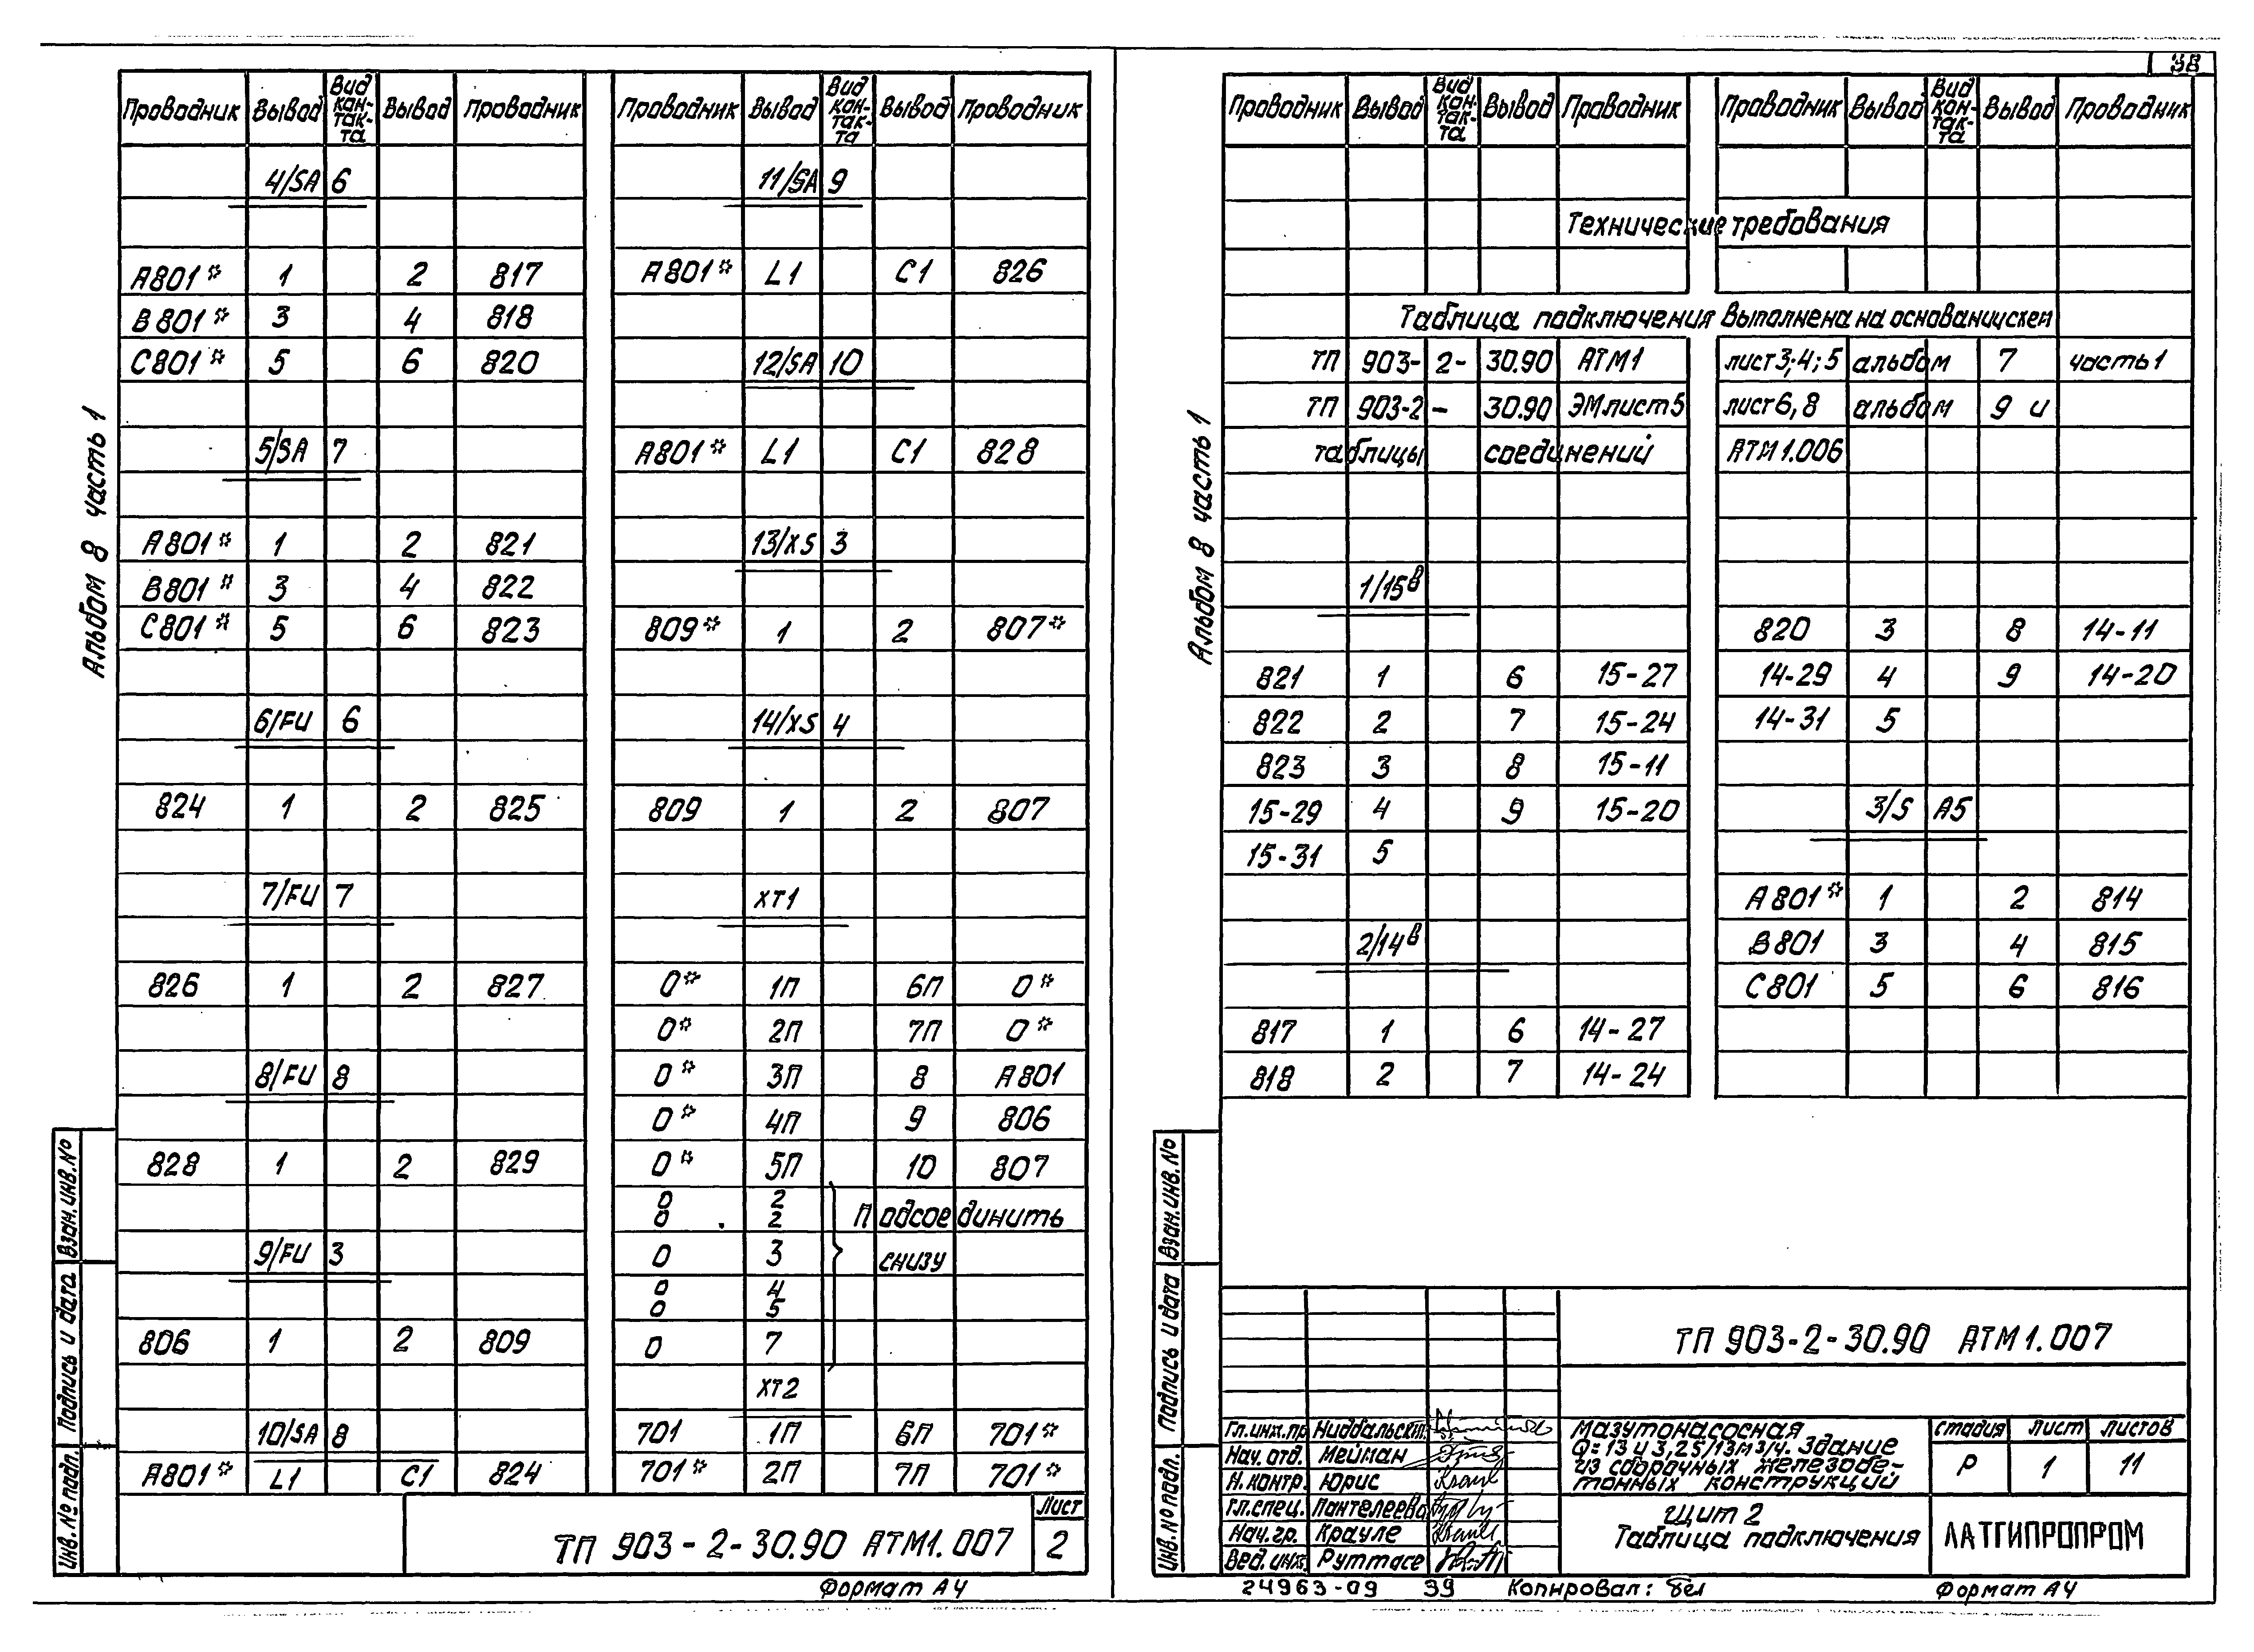 Альбом 8 часть 1
Проводник Вывод Вид контакта Вывод Проводник
4/SA 6
A801* 1 2 817
B801* 3 4 818
C801* 5 6 820
5/SA 7
A801* 1 2 821
B801* 3 4 822
C801* 5 6 823
6/FU 6
824 1 2 825
7/FU 7
826 1 2 827
8/FU 8
828 1 2 829
9/FU 3
806 1 2 809
10/SA 8
A801* L1 C1 824
Проводник Вывод Вид контакта Вывод Проводник
11/SA 9
A801* L1 C1 826
12/SA 10
A801* L1 C1 828
13/XS 3
809* 1 2 807*
14/XS 4
809 1 2 807
XT1
0* 1П 6П 0*
0* 2П 7П 0*
0* 3П 8 A801
0* 4П 9 806
0* 5П 10 807
0 2
0 2
Подсоединить
0 3 снизу
0 4
0 5
0 7
XT2
701 1П 6П 701*
701* 2П 7П 701*
Взам. инв. №
Подпись и дата
Инв. № подл.
ТП 903-2-30.90 АТМ1.007
Лист
2
Формат А4
38
Альбом 8 часть 1
Проводник Вывод Вид контакта Вывод Проводник
Проводник Вывод Вид контакта Вывод Проводник
Технические требования
Таблица подключения выполнена на основании схем
ТП 903-2-30.90 АТМ1 лист 3; 4; 5 альбом 7 часть 1
ТП 903-2-30.90 ЭМ лист 5 лист 6, 8 альбом 9 и
таблицы соединений АТМ1.006
1/15В
821 1 6 15-27
822 2 7 15-24
823 3 8 15-11
15-29 4 9 15-20
15-31 5
2/14В
817 1 6 14-27
818 2 7 14-24
820 3 8 14-11
14-29 4 9 14-20
14-31 5
3/S A5
A801* 1 2 814
B801 3 4 815
C801 5 6 816
Взам. инв. №
Подпись и дата
Инв. № подл.
ТП 903-2-30.90 АТМ1.007
Гл.инж.пр
Нач. отд. Мейман
Н.контр. Юрис
Гл.спец. Пантелеева
Нач. гр. Крауле
Вед. инж. Руттасе
Мазутонасосная
Q=13 и 3,25/13м3/ч. Здание
из сборочных железобе-
тонных конструкций
Стадия Лист Листов
Р 1 11
Щит 2
Таблица подключения
ЛАТГИПРОПРОМ
24963-09 39 Копировал: Бел Формат А4